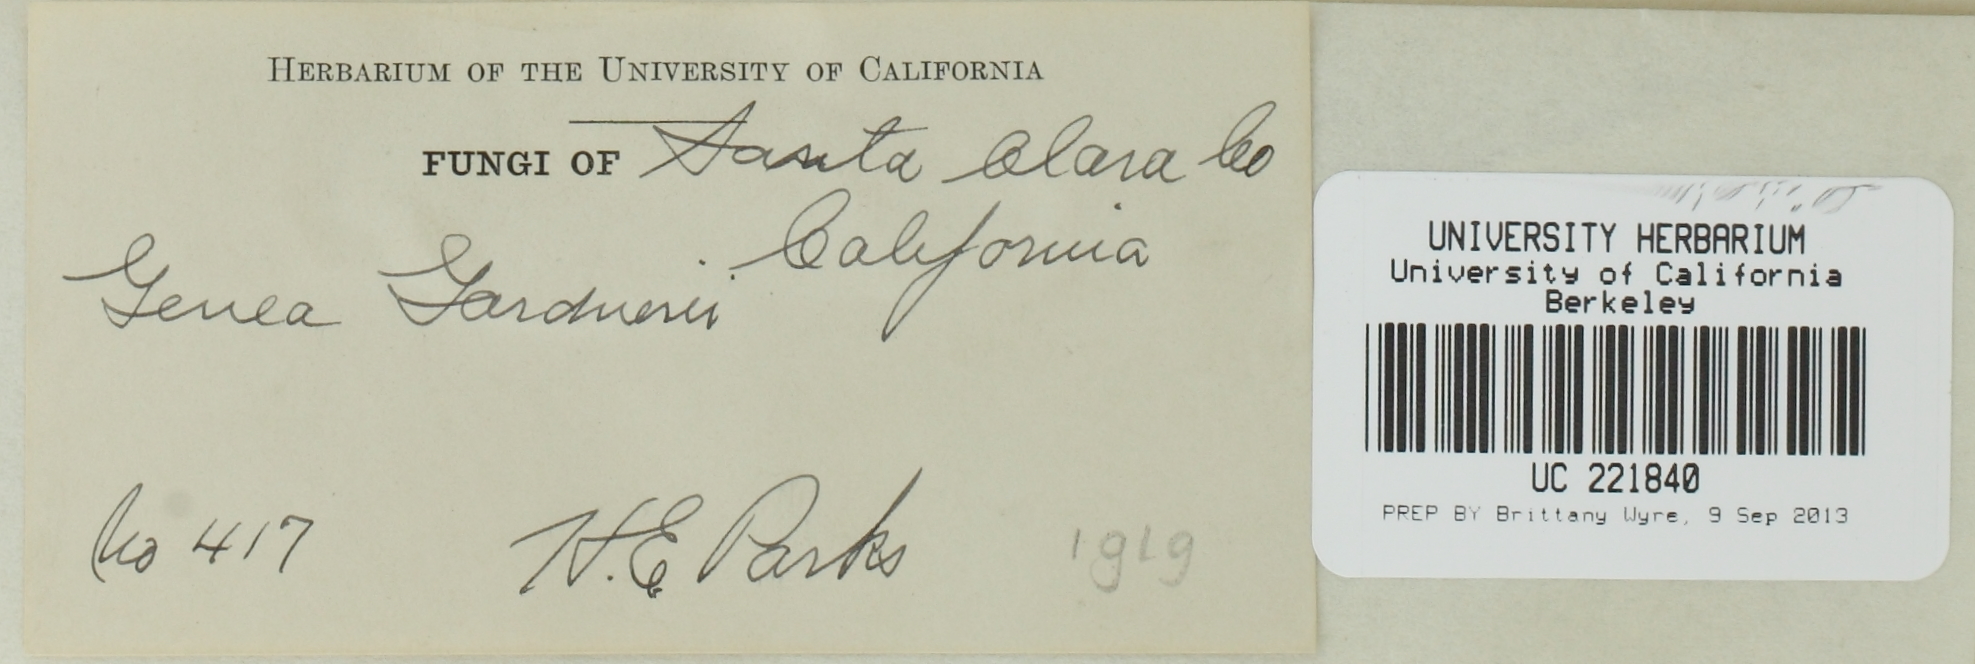 HERBARIUM OF THE UNIVERSITY OF CALIFORNIA
FUNGI OF Santa Clara Co
California
Genea Gardnerii
No 417 H. E. Parks 1919
UNIVERSITY HERBARIUM
University of California
Berkeley
UC 221840
PREP BY Brittany Wyre, 9 Sep 2013